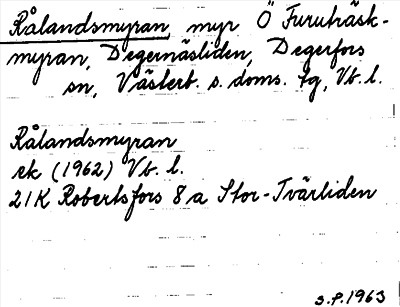 Rålandsmyran myr Ö Furuträsk-
myran, Degernäsliden, Degerfors
sn, Västerb. s. doms. tg, Vb. l.
Rålandsmyran
ek (1962) Vb. l.
21K Robertsfors 8a Stor-Tvärliden
S.P. 1963